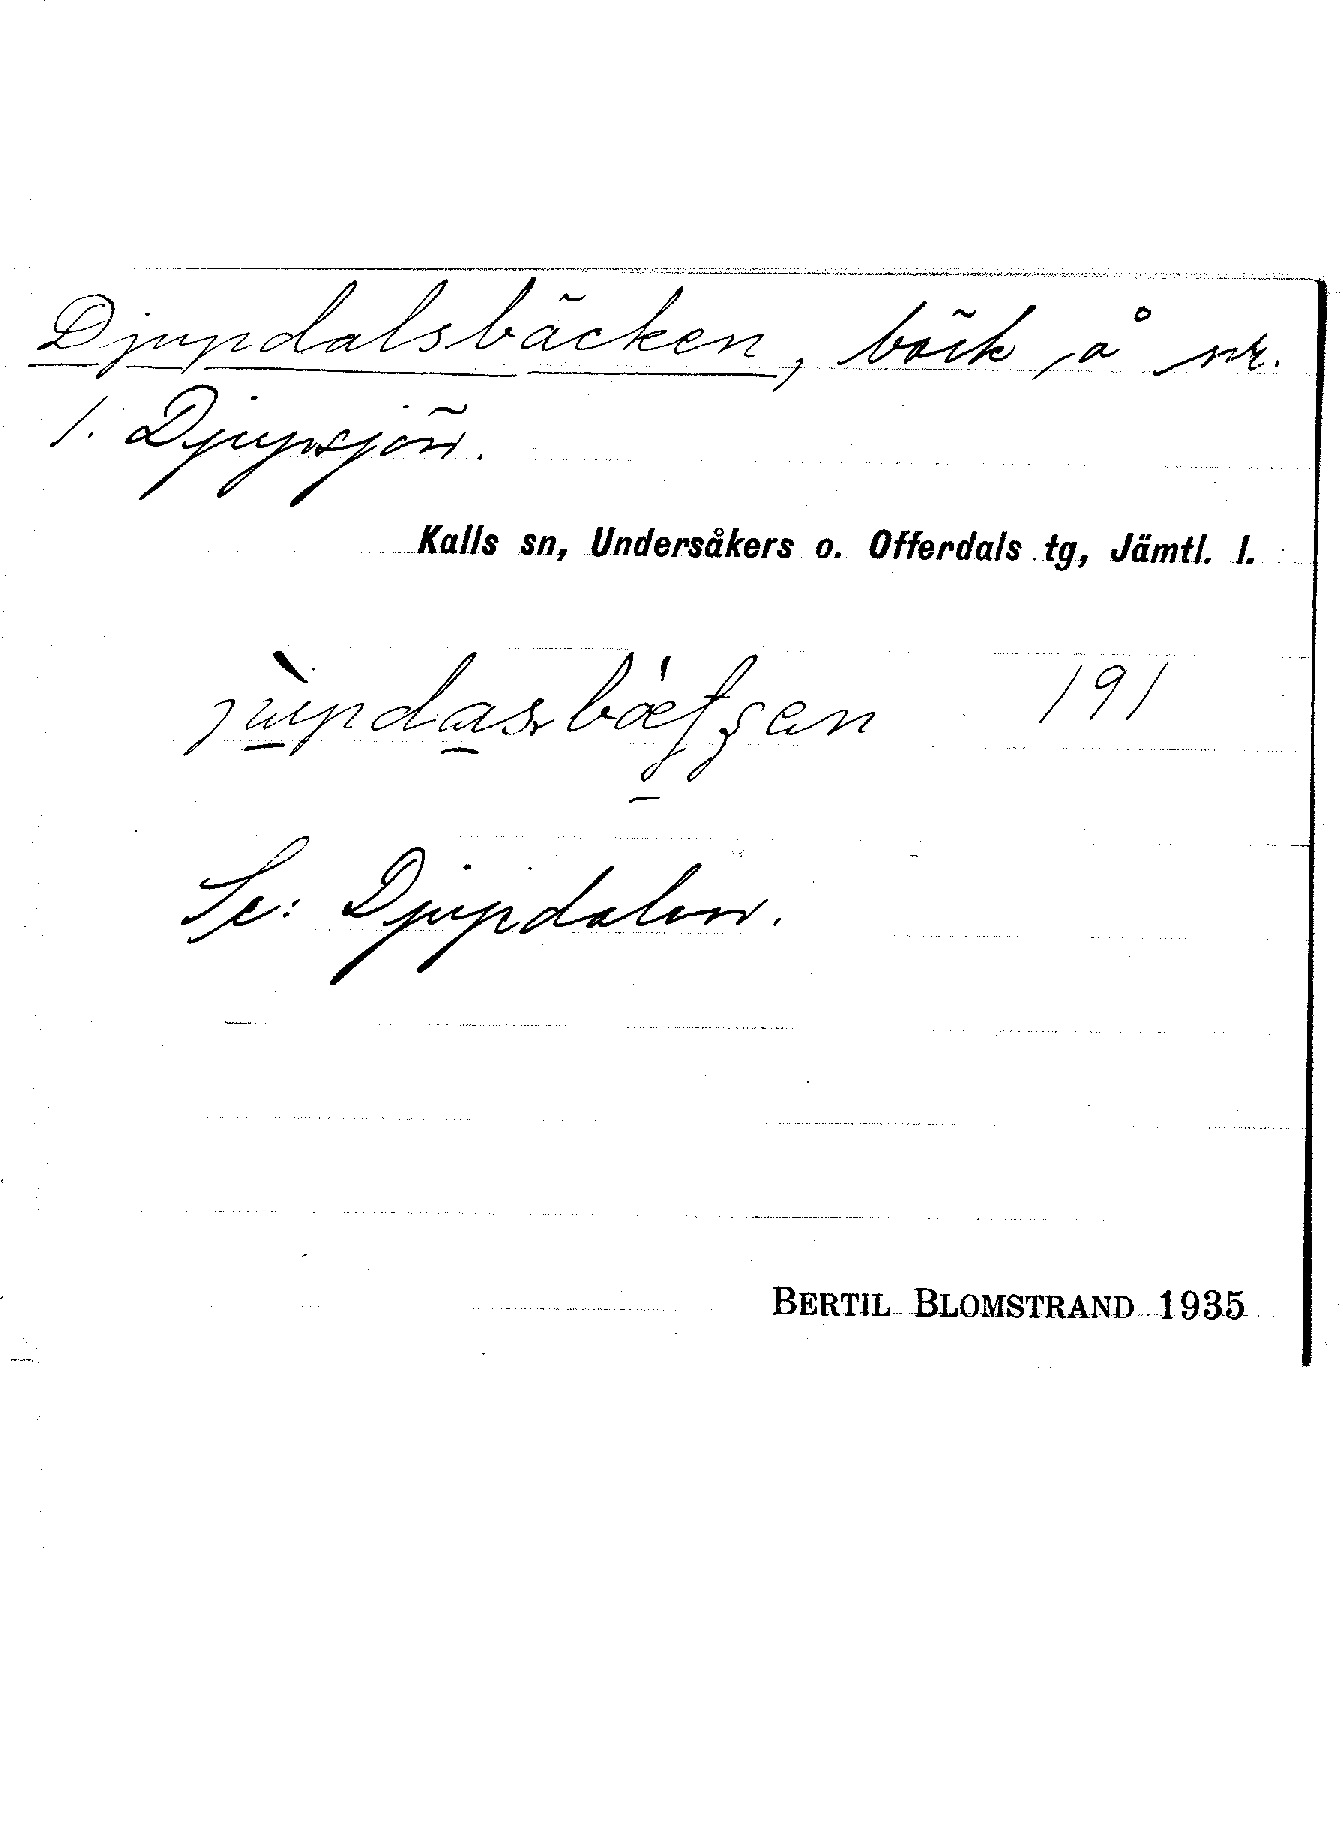 Djupdalsbäcken, bäck å nr.
1. Djupsjön.
Kalls sn, Undersåkers o. Offerdals tg, Jämtl. l.
191
Se: Djupdalen.
BERTIL BLOMSTRAND 1935